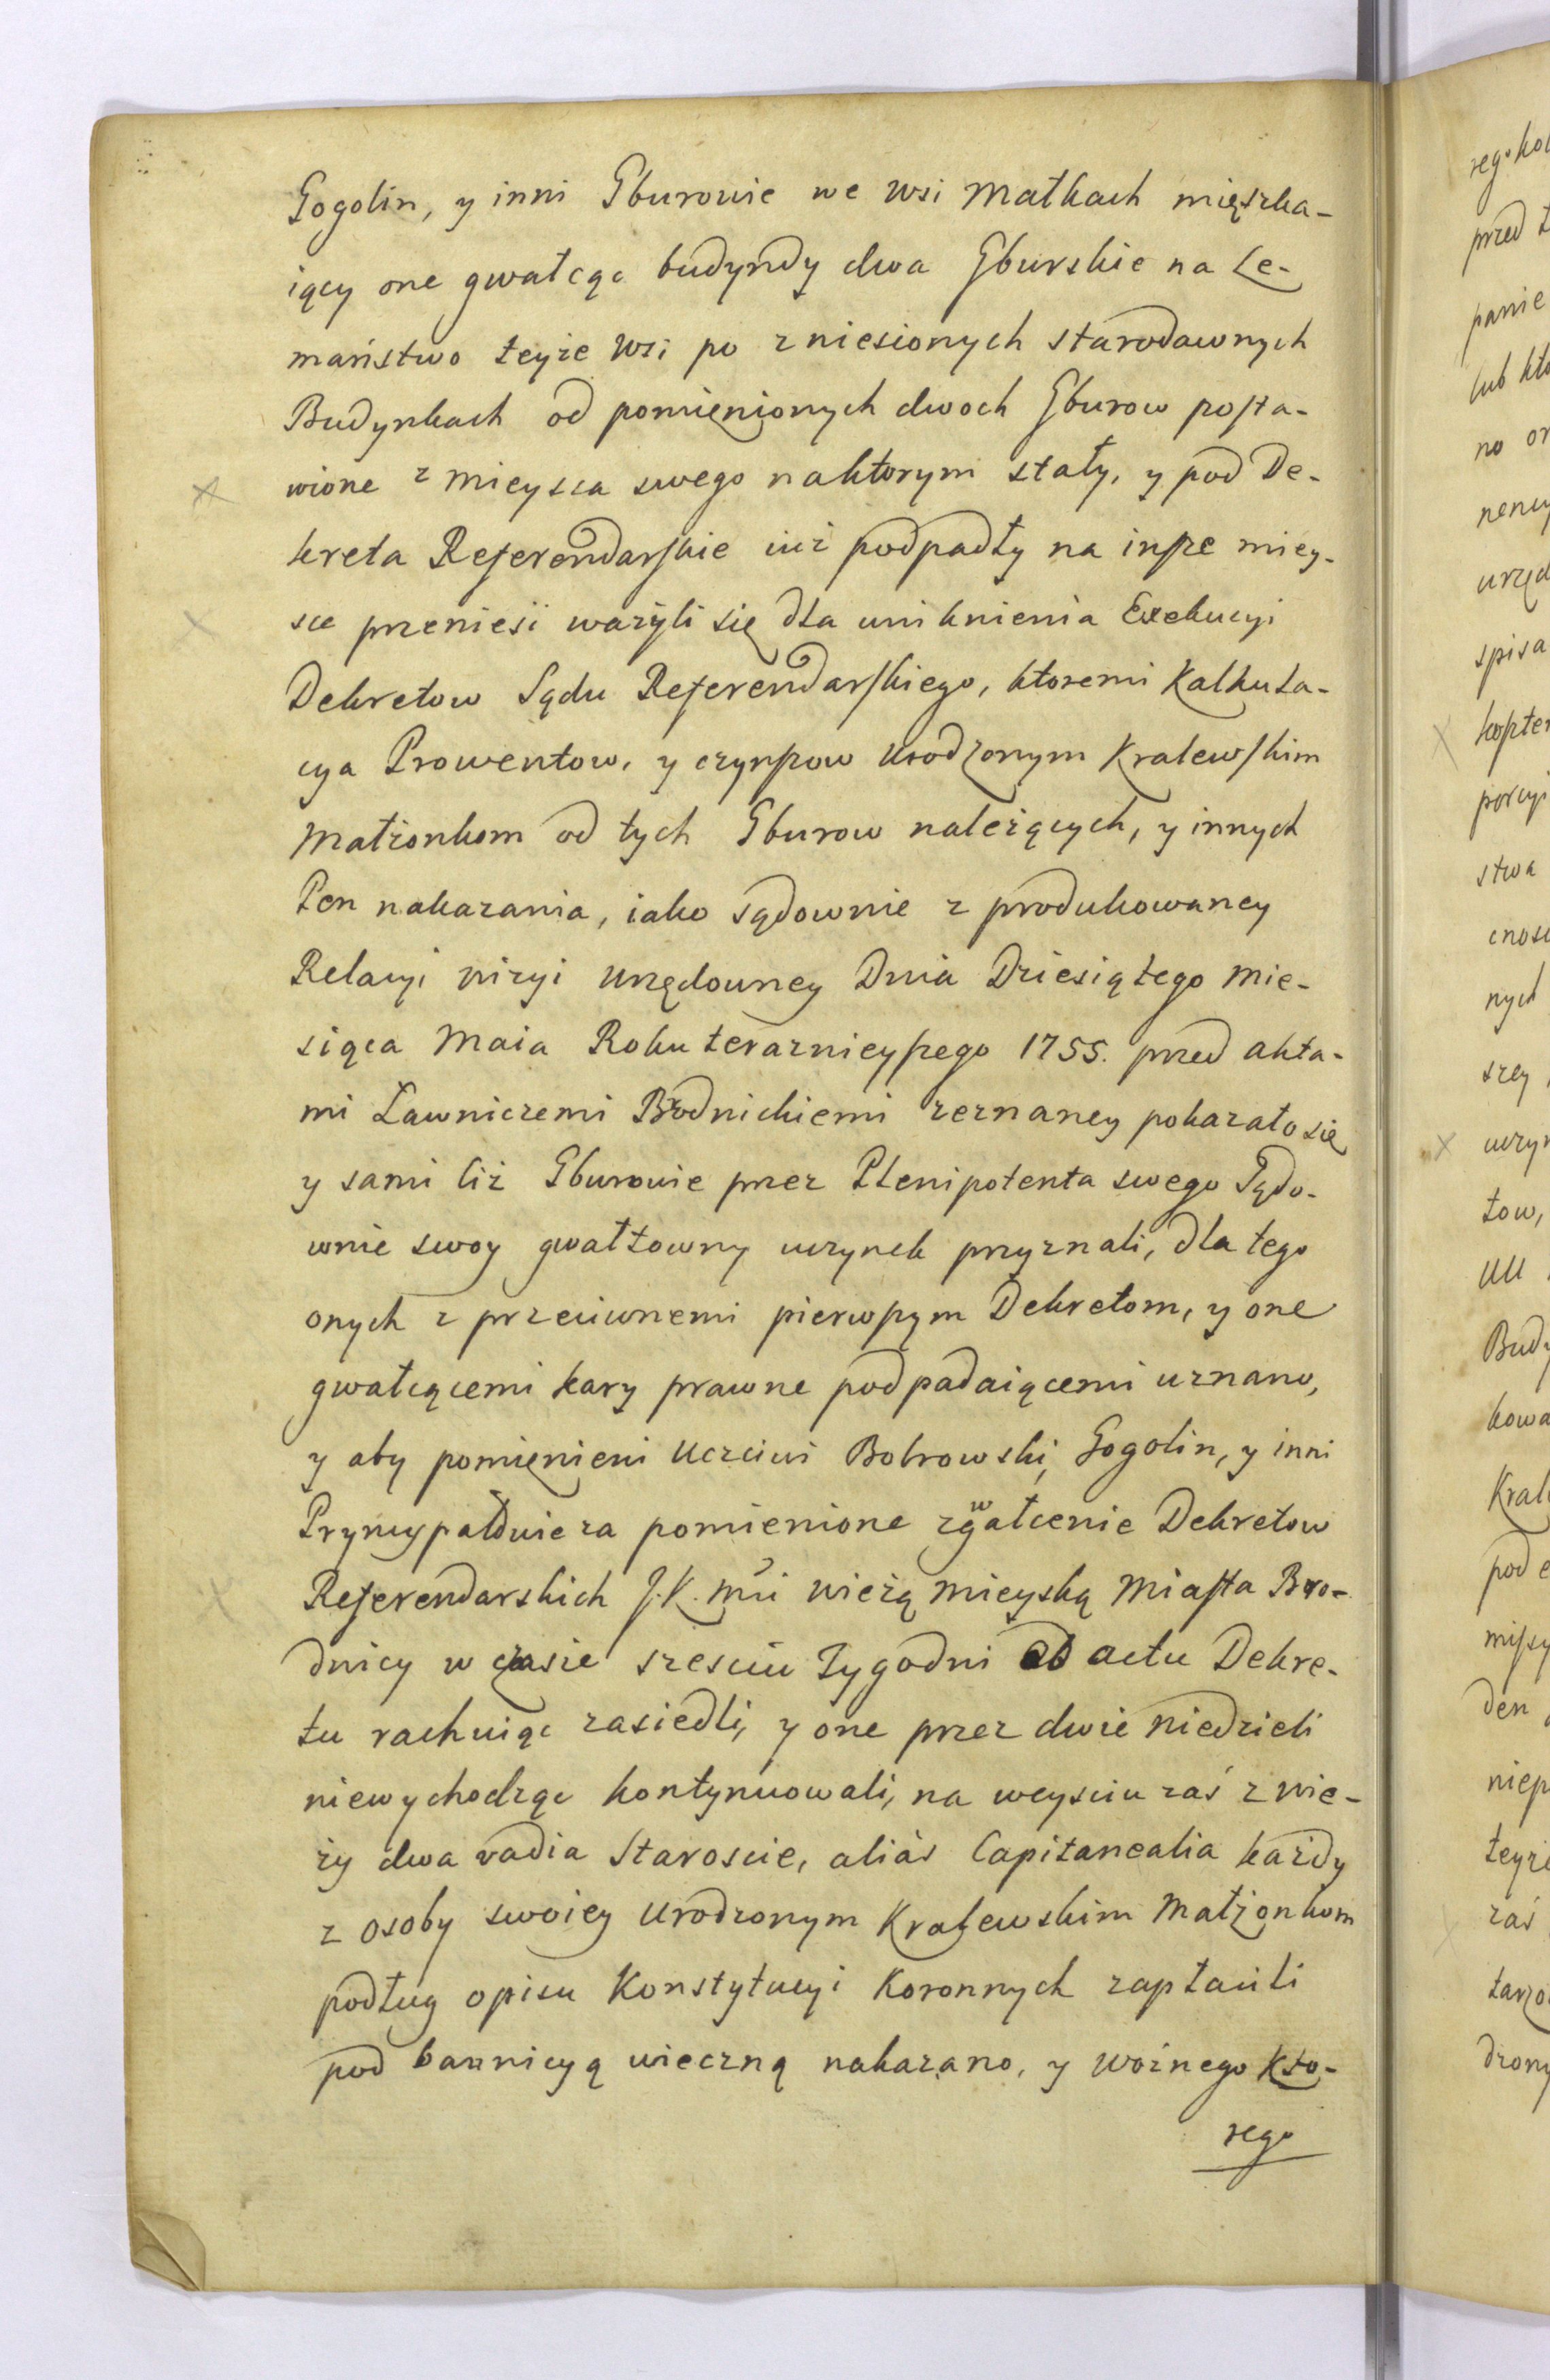 Gogolin, y inni Gburowie we wsi Małkach mięszka-
iący one gwałcąc budyndy dwa Gburskie na Le-
maństwo teyże wsi po zniesionych starodawnych
Budynkach od pomięnionych dwoch Gburow posta-
wione z mieysca swego naktorym stały, y pod De-
kreta Referendarskie iuż podpadły na insze miey-
sce przeniesć ważyli się dla uniknienia Exekucyi
Dekretow Sądu Referendarskiego, ktoremi Kalkula-
cya Prowentow, y czynszow Urodzonym Kralewskim
Małżonkom od tych Gburow należących, y innych
Pen nakazania, iako sądownie z produkowaney
Relacyi wizyi Urzędowney Dnia Dziesiątego Mie-
siąca Maia Roku teraznieyszego 1755. przed akta-
mi Ławniczemi Brodnickiemi zeznaney pokazało się
y sami ciż Gburowie przez Plenipotenta swego Sądo-
wnie swoy gwałtowny uczynek przyznali, dla tego
onych z przeciwnemi pierwszym Dekretom, y one
gwałcącemi kary prawne podpadaiącemi uznano,
y aby pomięnieni Uczciwi Bobrowski, Gogolin, y inni
Pryncypałowie za pomienione zgwałcenie Dekretow
Referendarskich J. K. Mci wieżą mieyską Miasta Bro-
dnicy w czasie szesciu Tygodni ab actu Dekre-
tu rachuiąc zasiedli, y one przez dwie niedzieli
niewychodząc kontynuowali, na weysciu zaś z wie-
ży dwa vadia Staroscie, aliàs Capitanealia każdy
z osoby swoiey Urodzonym Kralewskim Małżonkom
podług opisu Konstytucyi Koronnych zapłacili
pod bannicyą wieczną nakazano, y Woźnego Kto-
rego